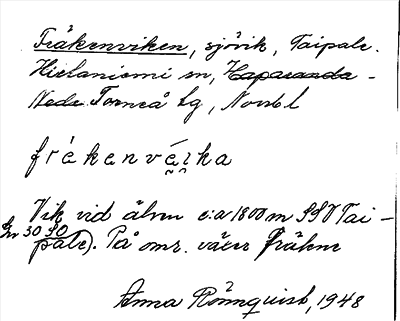 Fräkenviken, sjövik, Taipale.
Hietaniemi sn, Haparanda-
Nedr. Torneå tg, Norrb l
frékenvéi̯ka
Vik vid älven c:a 1800 m SSV Tai-
30 30
pale). På omr. växer fräkne
Anna Rönnquist, 1948